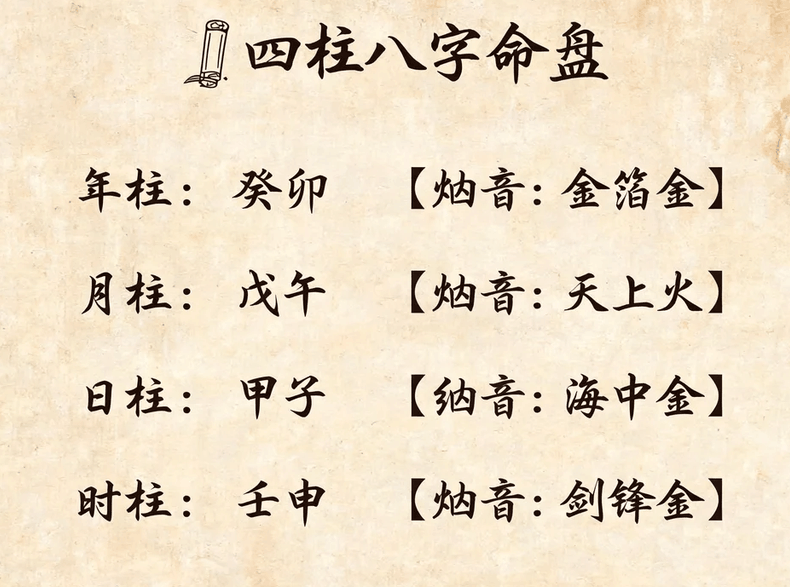 四柱八字命盘
年柱： 癸卯 【炳音：金箔金】
月柱： 戊午 【炳音：天上火】
日柱： 甲子 【纳音：海中金】
时柱： 壬申 【炳音：剑锋金】